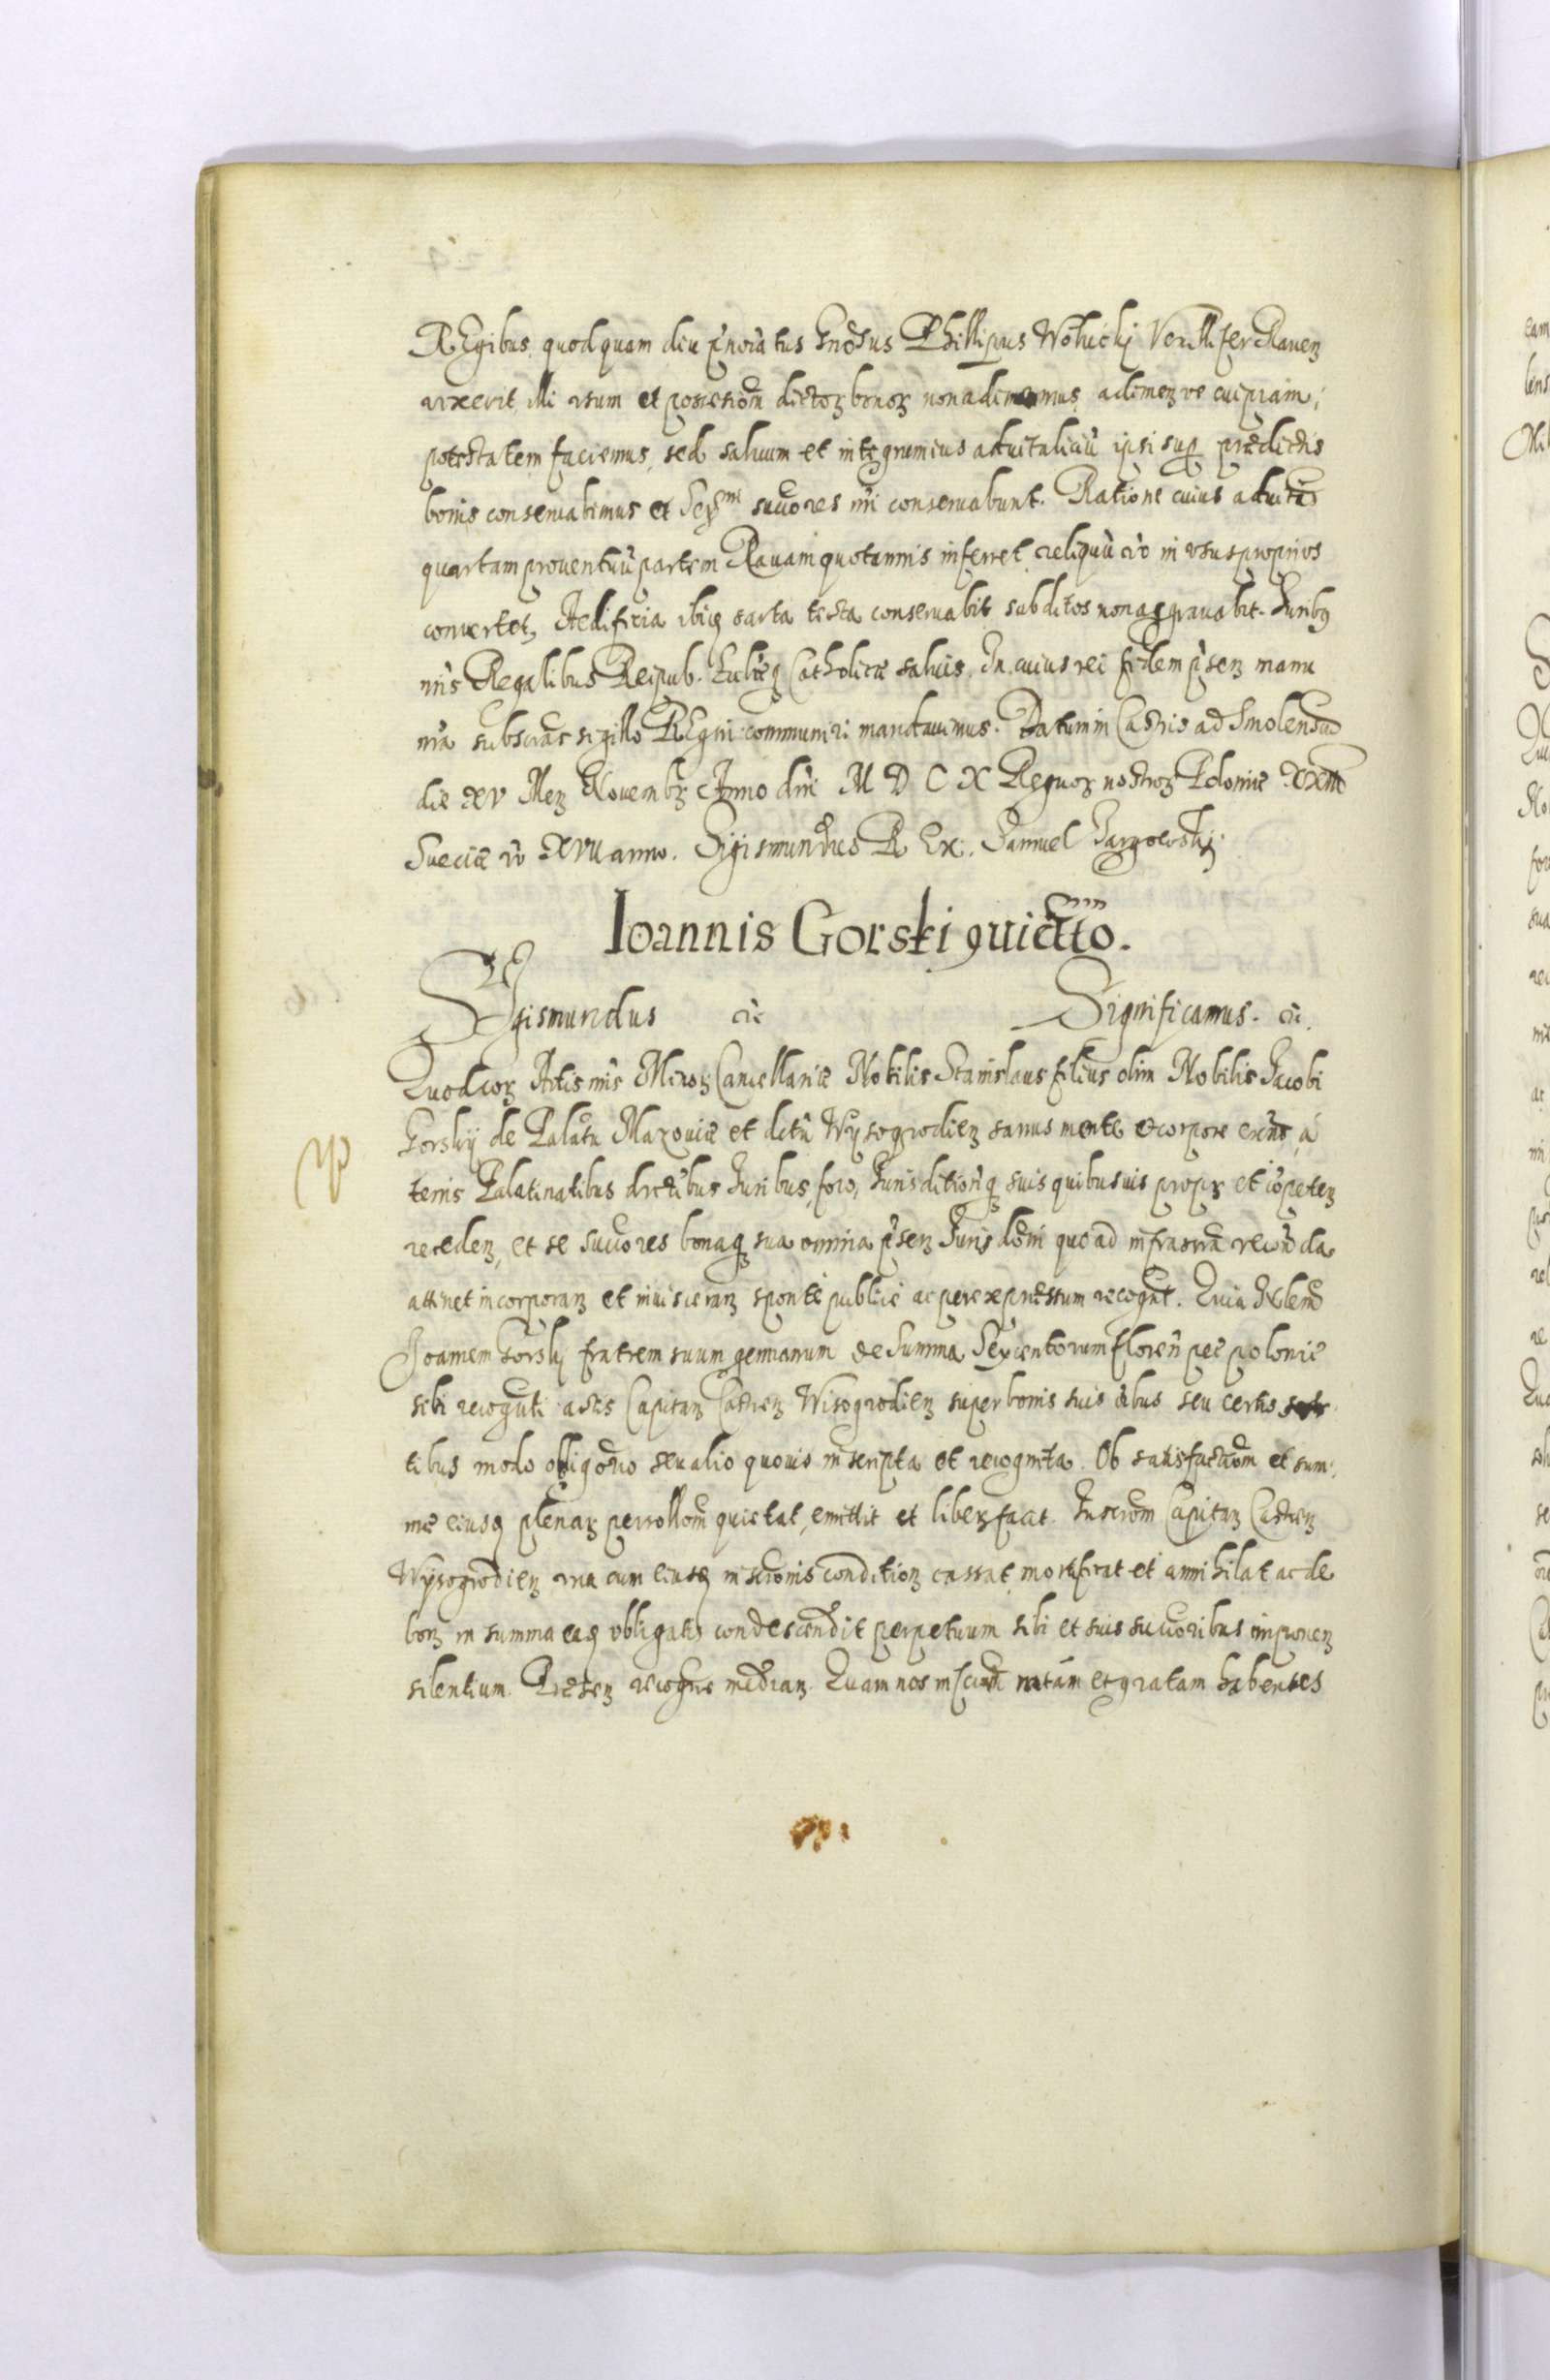 REgibus, quod quam diu pñoiatus Gñosus Phillipus Wolucky Vexillifer Rauen
vixerit, illi vsum et possesionem dictor bonor non adimemus, adimen ve cuipiam
potestatem faciemus, sed saluum et integrum ius aduitalitiũ ipsi sup prædictis
bonis conseruabimus et Serᵐⁱ succores nri conseruabunt. Ratione cuius aduit
quartam prouentuũ partem Rauam quotannis inferret, reliquũ v̊o in vsus proprios
conuertet, Aedificia ibiq sarta tecta conseruabit subditos non aggrauabit. Iuribq
nris Regalibus Reipub. Eccliæq Catholicæ saluis. In cuius rei fidem p̃sen manu
nra subscrãs sigillo REgni communiri mandauimus. Datum in Castris ad Smolenscũ
die XV Men Nouembr Anno dñi M D C X Regnor nostror Poloniæ XXIII
Sueciæ v̊o XVII anno. Sigismundus REx. Samuel Targowski
Ioannis Gorski quictto.
Sigismundus etc Significamus. etc.
Quod cor Actis nris Mtror Cancellariæ Nobilis Stanislaus filius olim Nobilis Iacobi
Gorskij de Palatu Mazouiæ et dctu Wysogrodien sanus mente et corpore exñs, a
terris Palatinatibus drctibus Iuribus, foro, Iurisditionq suis quibusuis proprs et cõpeten
receden, et se succores bonaq sua omnia p̃sen Iuris dõni quo ad infrascrta recõnda
attinet incorporan et inuisceran sponte publice ac per expressum recognt. Quia Gñlem
Joannem Gorsky fratrem suum germanum de Summa Sexcentorum floren pec polonic
sibi recognti actis Capitan Castren Wisogrodien super bonis suis õibus seu certis
tibus modo obligorio seu alio quouis inscripta et recognita. Ob satisfactiom et sum
me eiusq plenar persollom quietat, emittit et liber facit. Inscrom Capitan Castren
Wysogrodien vna cum eiusq inscronis condition cassat, mortificat et annihilat ac de
bon in summa eaq obligatis condescendit perpetuum sibi et suis succoribus imponen
silentium. Præsen recogne median. Quam nos ratam et gratam habentes